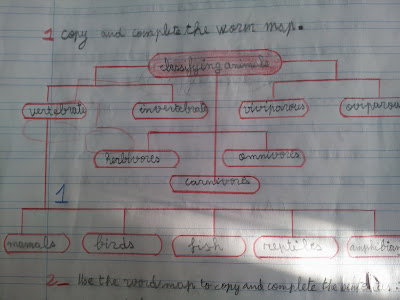 1 Copy and complete the worm map.
classifying animals
vertebrate invertebrate viviparous oviparous
herbivores omnivores
carnivores
1
mamals birds fish reptiles amphibian
2_ Use the wordmap to copy and complete the